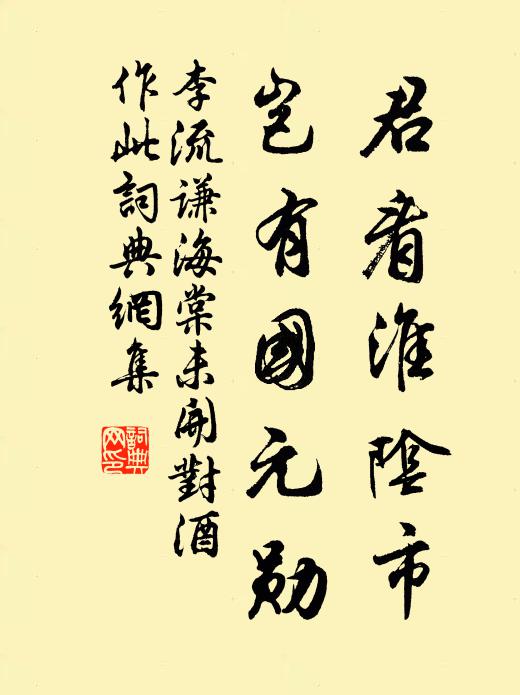 君看淮陰市
岂有國元勋
李流謙海棠未開對酒
作此詞典網集
詞典
网印